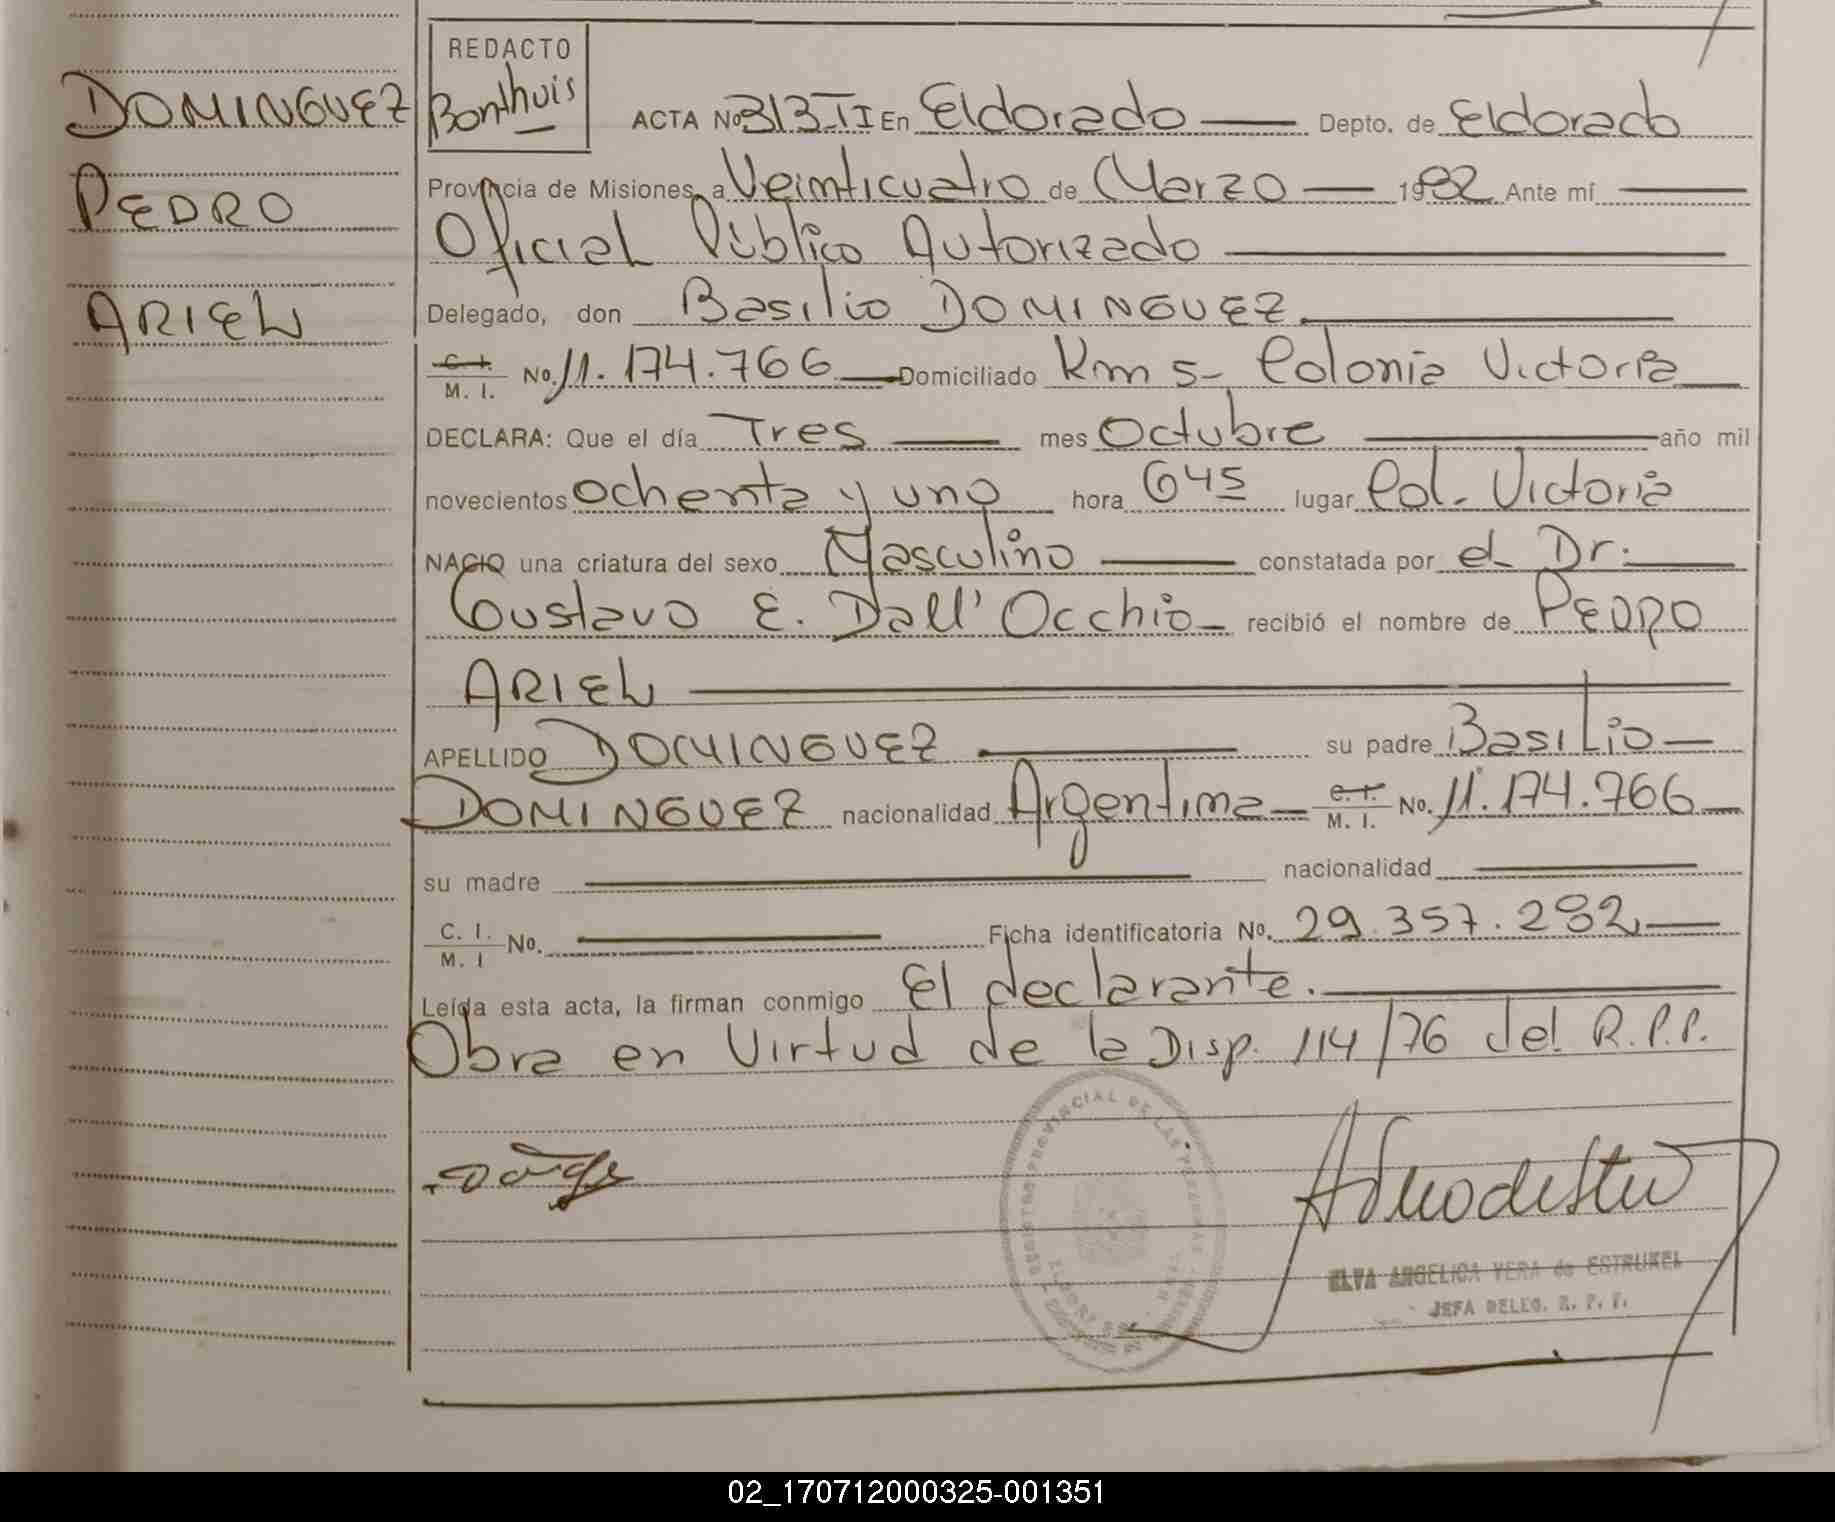 DOMINGUEZ
PEDRO
ARIEL
REDACTO
Bonthuis
ACTA No 313-II En Eldorado Depto. de Eldorado
Provincia de Misiones, a Veinticuatro de Marzo 1982 Ante mí
Oficial Público Autorizado
Delegado, don Basilio DOMINGUEZ
C. I.
M. I. No. 11.174.766 Domiciliado Km 5- Colonia Victoria
DECLARA: Que el día Tres mes Octubre año mil
novecientos ochenta y uno hora 645 lugar Col. Victoria
NACIO una criatura del sexo Masculino constatada por el Dr.
Gustavo E. Dall'Occhio recibió el nombre de PEDRO
ARIEL
APELLIDO DOMINGUEZ su padre Basilio
DOMINGUEZ nacionalidad Argentina C. I. M. I. No. 11.174.766
su madre nacionalidad
C. I.
M. I No. Ficha identificatoria No. 29.357.282
Leída esta acta, la firman conmigo El declarante.
Obra en Virtud de la Disp. 114/76 del R.P.P.
REGISTRO PROVINCIAL DE LAS PERSONAS
ELVA ANGELICA VERA de ESTRUKEL
JEFA DELEG. R. P. P.
02_170712000325-001351